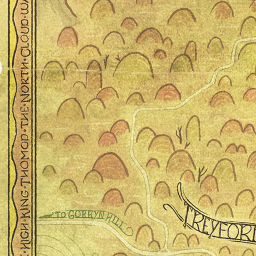 HIGH·KING·THOMAD·THE·NORTH·CLOUD·WA
TO GORRYN HILL
TREYFOR